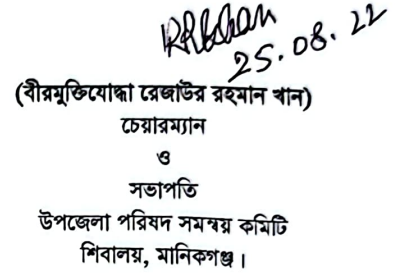 25.08.22
(বীরমুক্তিযোদ্ধা রেজাউর রহমান খান)
চেয়ারম্যান
ও
সভাপতি
উপজেলা পরিষদ সমন্বয় কমিটি
শিবালয়, মানিকগঞ্জ।